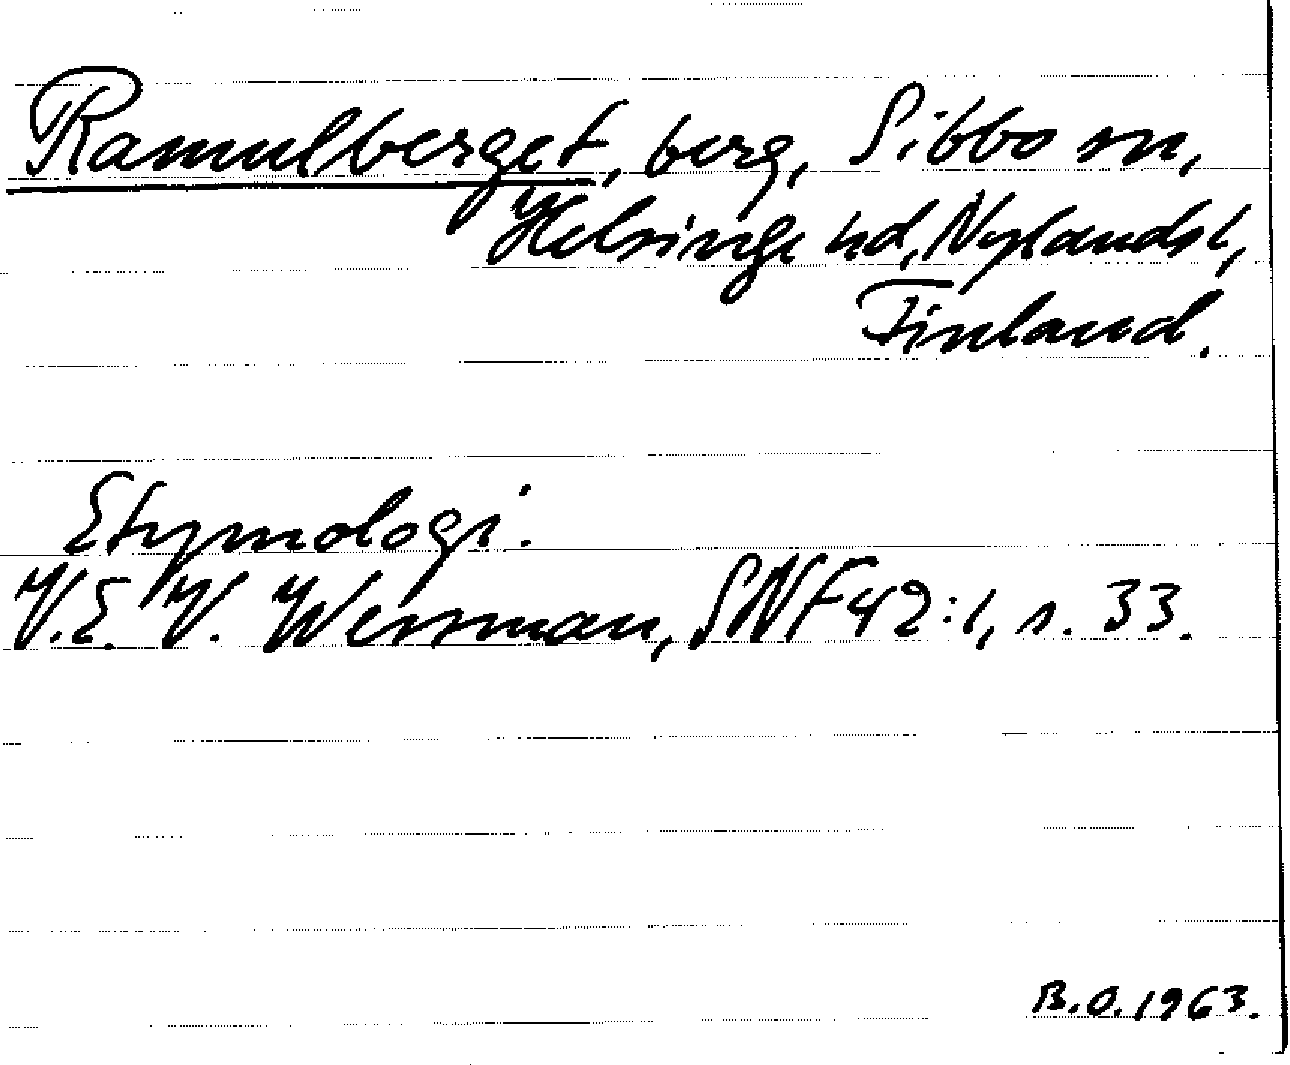 Ramulberget, berg, Sibbo sn,
Helsinge hd, Nylands l,
Finland.
Etymologi.
V.E.V. Wessman, SNF 42:1, s. 33.
B.O. 1963.